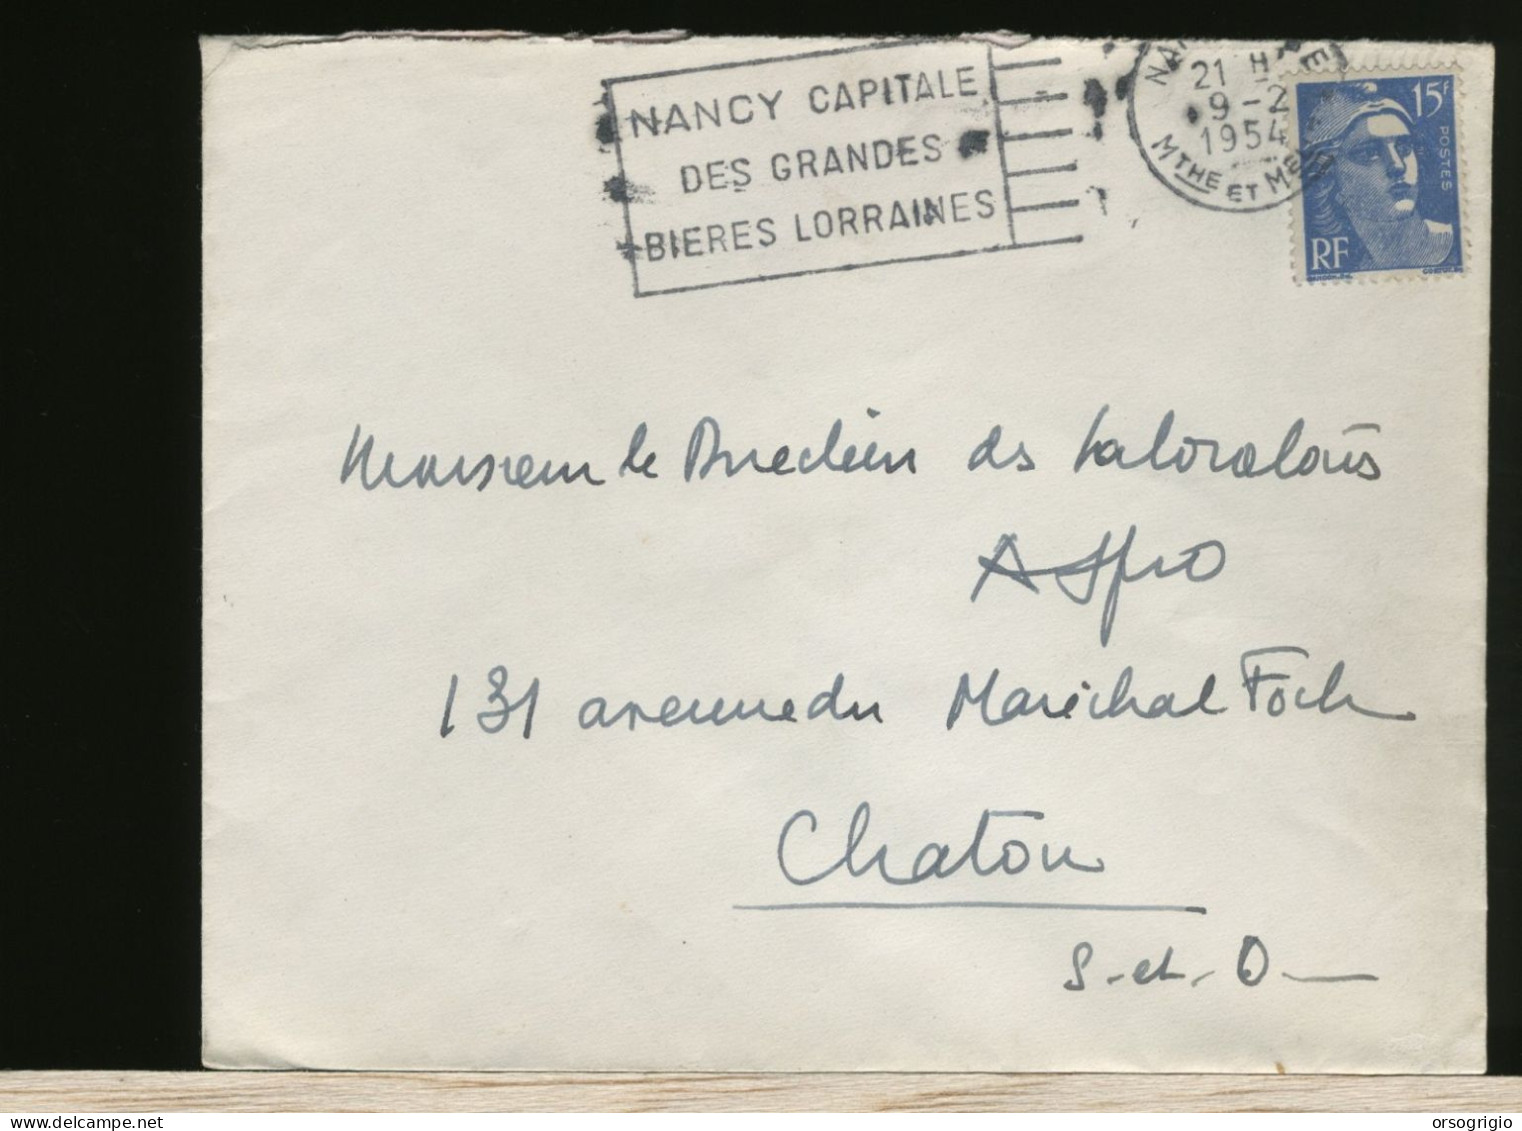 NANCY CAPITALE
DES GRANDES
BIERES LORRAINES
21 H
9-2
1954
MTHE ET M
15F
POSTES
RF
Monsieur le Directeur des Laboratoires
Aspro
131 avenue du Maréchal Foch
Chatou
S.-et-O
orsogrigio